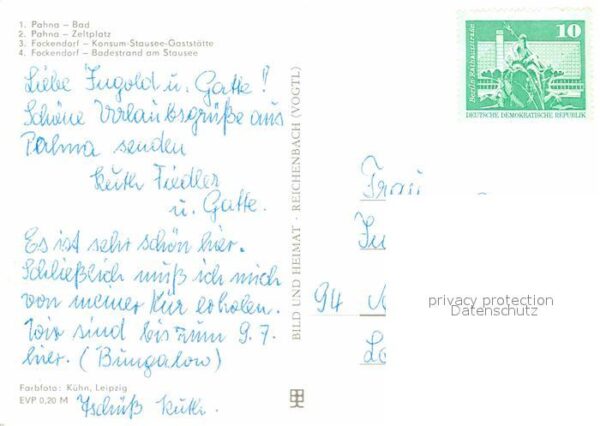 1. Pahna – Bad
2. Pahna – Zeltplatz
3. Fockendorf – Konsum-Stausee-Gaststätte
4. Fockendorf – Badestrand am Stausee
Liebe Ingold u. Gatte!
Schöne Urlaubsgrüße aus
Pahna senden
Ruth Fiedler
u. Gatte.
Es ist sehr schön hier.
Schließlich muß ich mich
von meiner Kur erholen.
Wir sind bis zum 9.7.
hier. (Bungalow)
Tschüß Ruth.
Farbfoto: Kühn, Leipzig
EVP 0,20 M
BILD UND HEIMAT · REICHENBACH (VOGTL)
Berlin, Rathausstraße
10
DEUTSCHE DEMOKRATISCHE REPUBLIK
Frau
94
privacy protection
Datenschutz